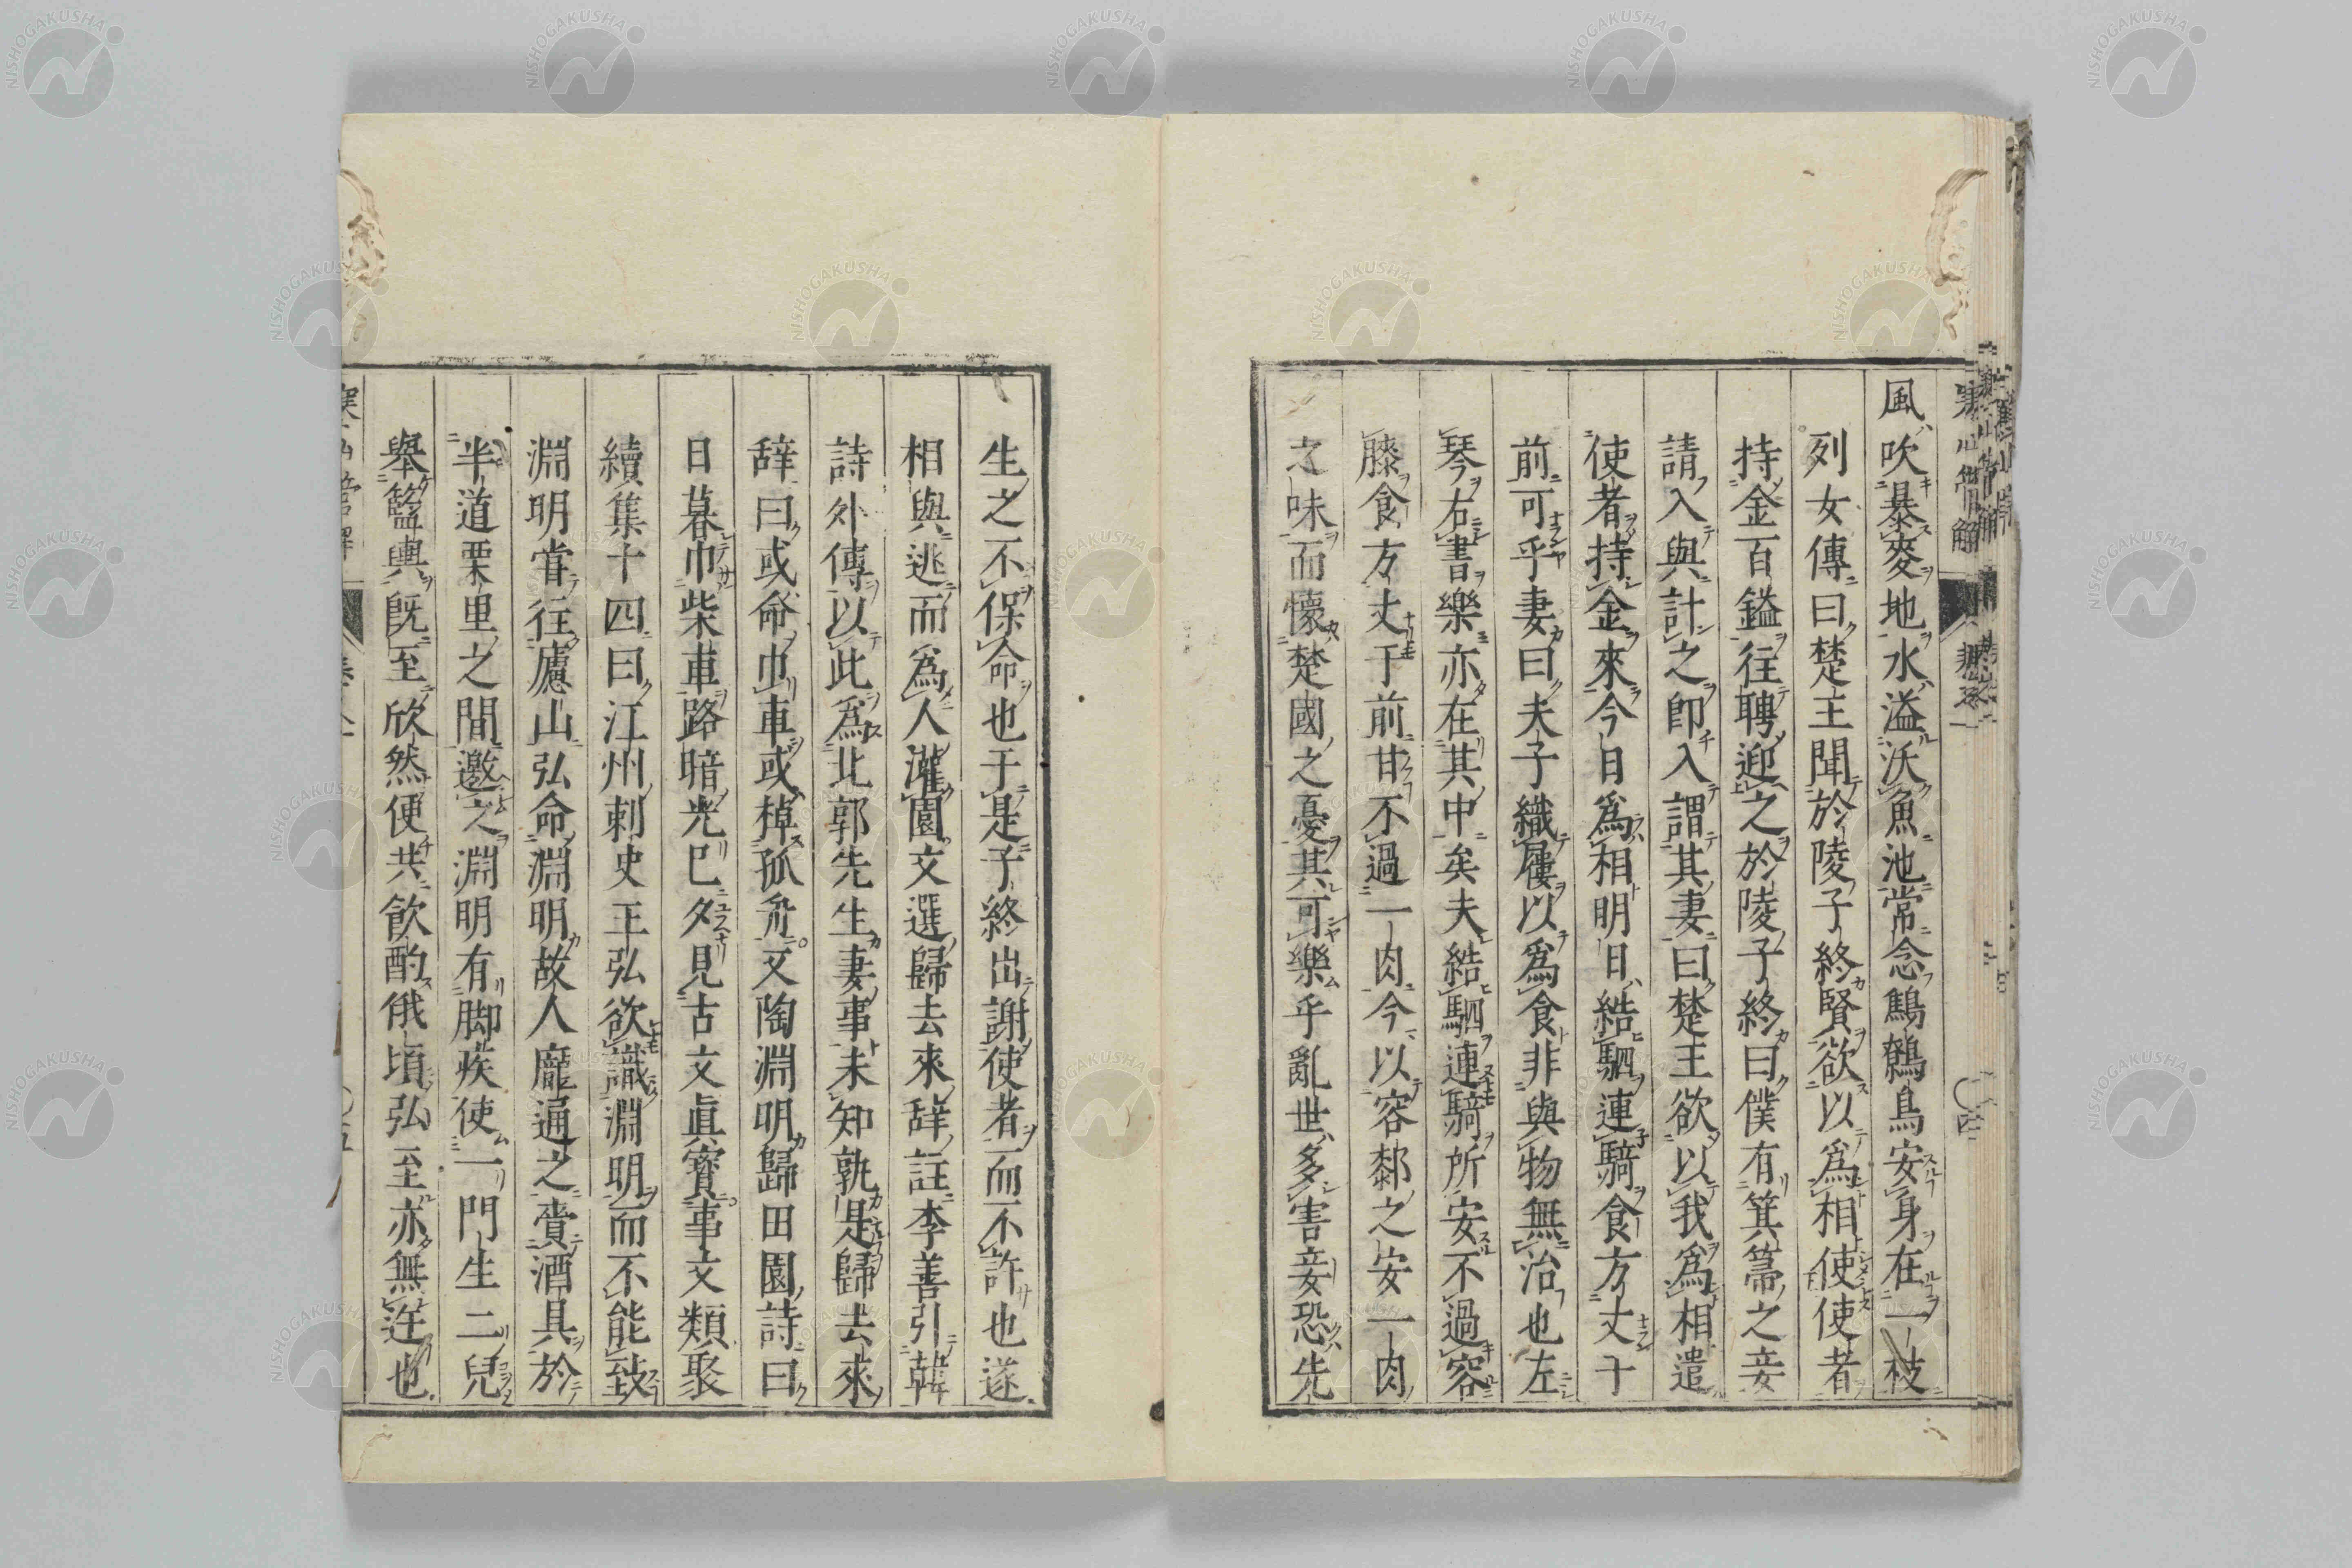 風吹暴麥地水溢沃魚池常念鷦鷯鳥安身在一枝
列女傳曰楚王聞於陵子終賢欲以爲相使使者
持金百鎰往聘迎之於陵子終曰僕有箕箒之妾
請入與計之卽入謂其妻曰楚王欲以我爲相遣
使者持金來今日爲相明日結駟連騎食方丈于
前可乎妻曰夫子織屨以爲食非與物無治也左
琴右書樂亦在其中矣夫結駟連騎所安不過容
膝食方丈于前甘不過一肉今以容膝之安一肉
之味而懷楚國之憂其可樂乎亂世多害妾恐先
生之不保命也于是子終出謝使者而不許也遂
相與逃而爲人灌園文選歸去來辭註李善引韓
詩外傳以此爲北郭先生妻事未知孰是歸去來
辭曰或命巾車或棹孤舟文陶淵明歸田園詩曰
日暮巾柴車路暗光已夕見古文眞寳事文類聚
續集十四曰江州刺史王弘欲識淵明而不能致
淵明甞往廬山弘命淵明故人龐通之賷酒具於
半道栗里之間邀之淵明有脚疾使一門生二兒
舉籃輿旣至欣然便共飮酌俄頃弘至亦無迕也